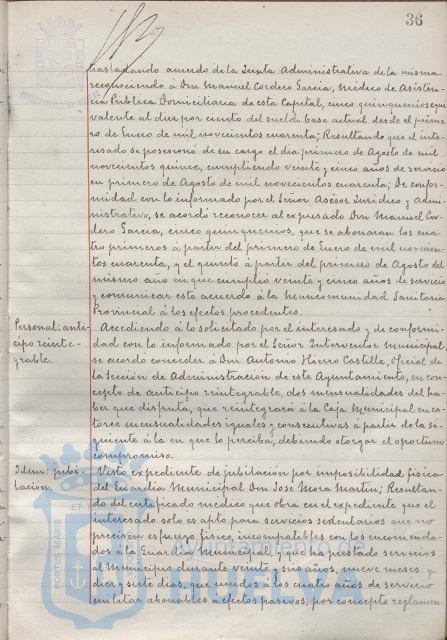 36
trasladando acuerdo de la Junta Administrativa de la misma
reconociendo á Don Manuel Cordero García, Médico de Asisten-
cia Pública Domiciliaria de esta Capital, cinco quinquenios equi-
valente al diez por ciento del sueldo base actual desde el prime-
ro de Enero de mil novecientos cuarenta; Resultando que el inte-
resado se posesionó de su cargo el dia primero de Agosto de mil
novecientos quince, cumpliendo veinte y cinco años de servicio
en primero de Agosto de mil novecientos cuarenta; De confor-
midad con lo informado por el Señor Asesor Jurídico y Admi-
nistrativo, se acordó reconocer al expresado Don Manuel Cor-
dero García, cinco quinquenios, que se abonaran los cua-
tro primeros á partir del primero de Enero de mil novecien-
tos cuarenta, y el quinto á partir del primero de Agosto del
mismo año en que cumplió veinte y cinco años de servicio
y comunicar este acuerdo á la Mancomunidad Sanitaria
Provincial á los efectos procedentes.
Personal: anti-
cipo reinte-
grable.
Accediendo á lo solicitado por el interesado y de conformi-
dad con lo informado por el Señor Interventor municipal,
se acordó conceder á Don Antonio Hierro Castilla, Oficial de
la Sección de Administración de este Ayuntamiento, en con-
cepto de anticipo reintegrable, dos mensualidades del ha-
ber que disfruta, que reintegrará á la Caja Municipal en ca-
torce mensualidades iguales y consecutivas á partir de la si-
guiente á la en que lo perciba, debiendo otorgar el oportuno
compromiso.
Idem: jubi-
lación.
Visto expediente de jubilación por imposibilidad física
del Guardia Municipal Don José Mora Martín; Resultan-
do del certificado médico que obra en el expediente que el
interesado solo es apto para servicios sedentarios que no
precisen esfuerzo físico incompatibles con los encomenda-
dos á la Guardia Municipal, y que ha prestado servicios
al Municipio durante veinte y seis años, nueve meses y
diez y siete dias, que unidos á los cuatro años de servicio
militar abonables á efectos pasivos, por concepto reglamen-
PORTUS MARIS
ET
Ayuntamiento de
HUELVA